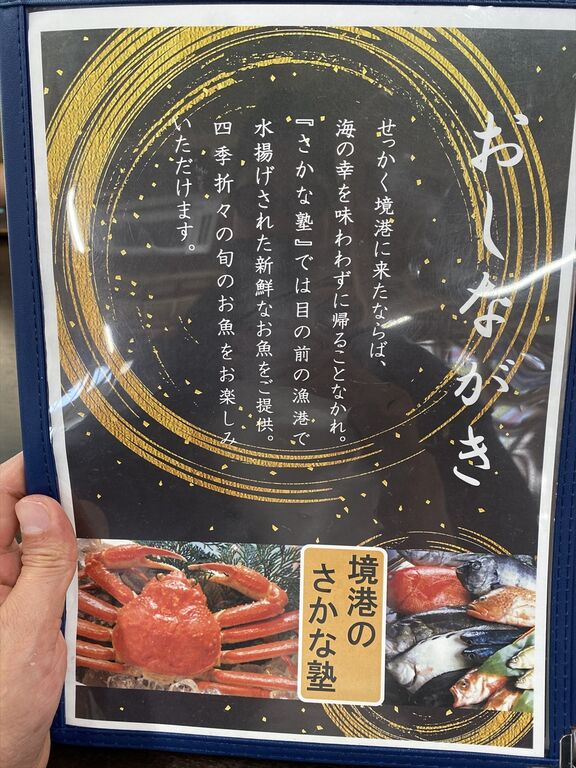 おしながき
せっかく境港に来たならば、
海の幸を味わわずに帰ることなかれ。
『さかな塾』では目の前の漁港で
水揚げされた新鮮なお魚をご提供。
四季折々の旬のお魚をお楽しみ
いただけます。
境港の
さかな塾